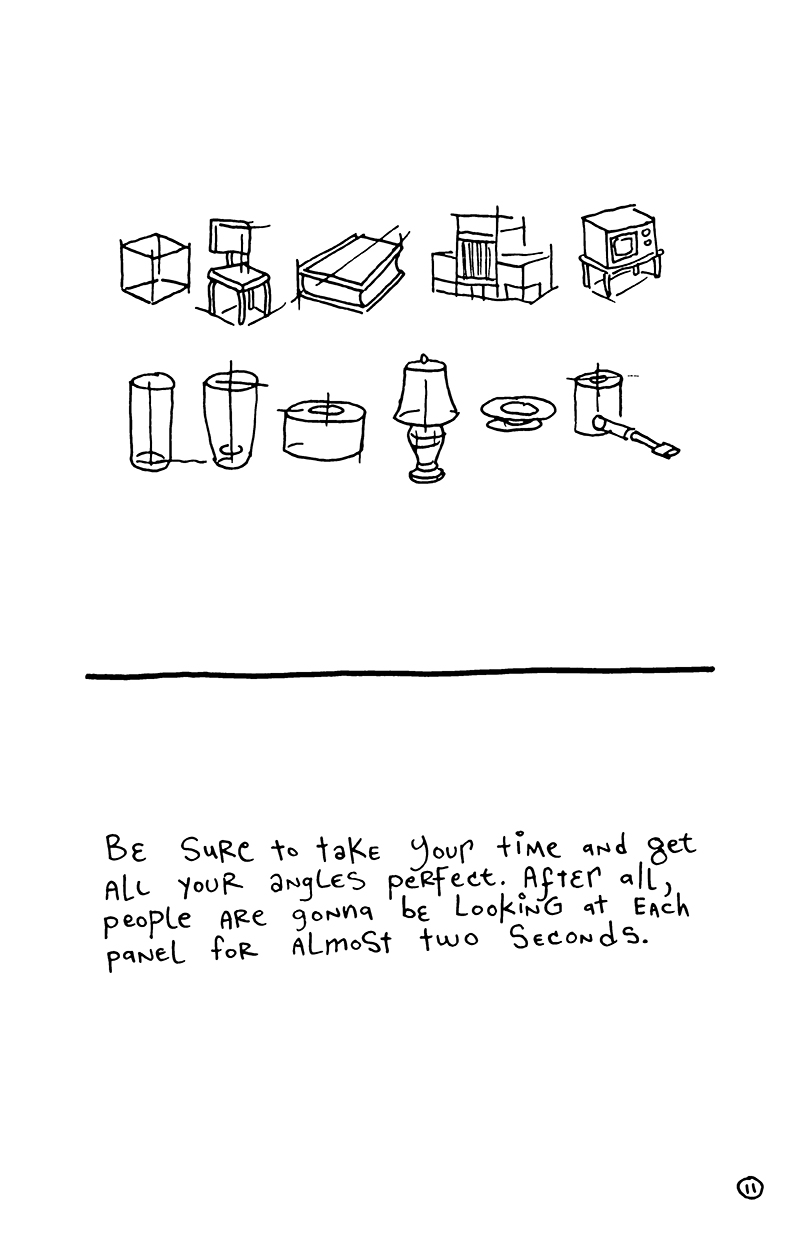 Be sure to take your time and get
all your angles perfect. After all,
people are gonna be looking at each
panel for almost two seconds.
11